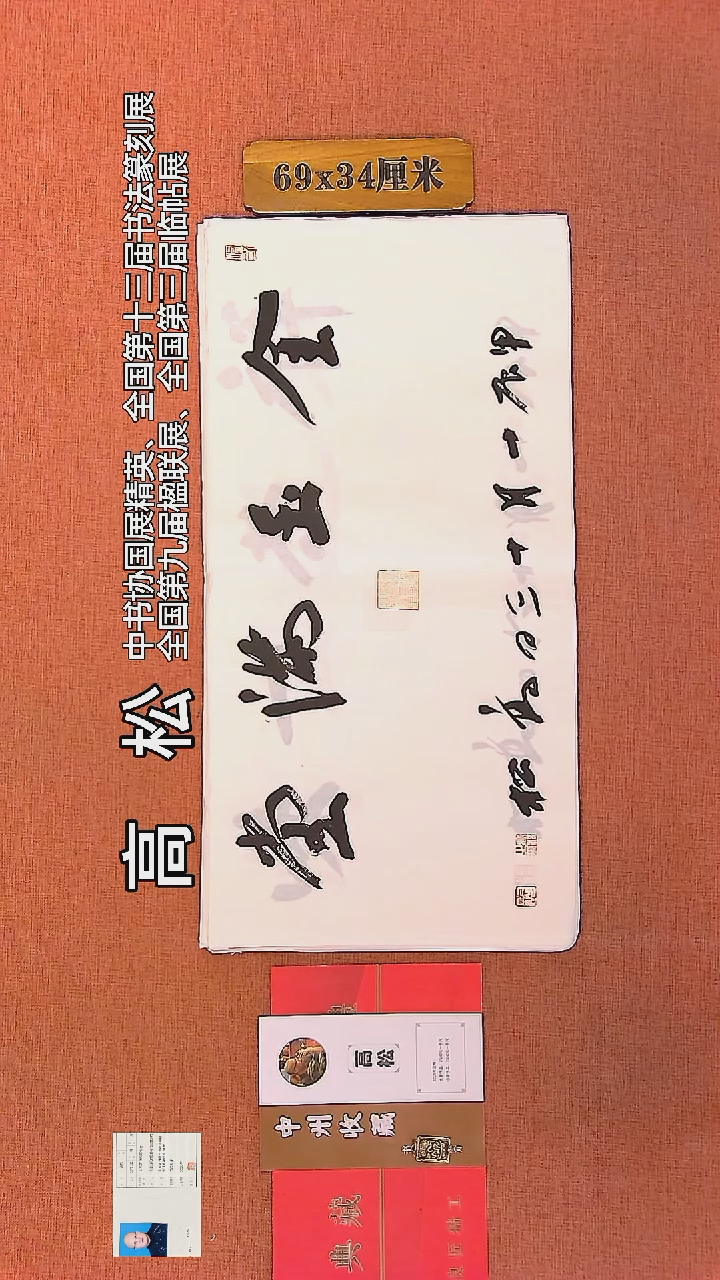 高 松
中书协国展精英、全国第十三届书法篆刻展
全国第九届楹联展、全国第三届临帖展
69x34厘米
金玉满堂
甲辰一月十三日高松
高松
中州收藏
典藏